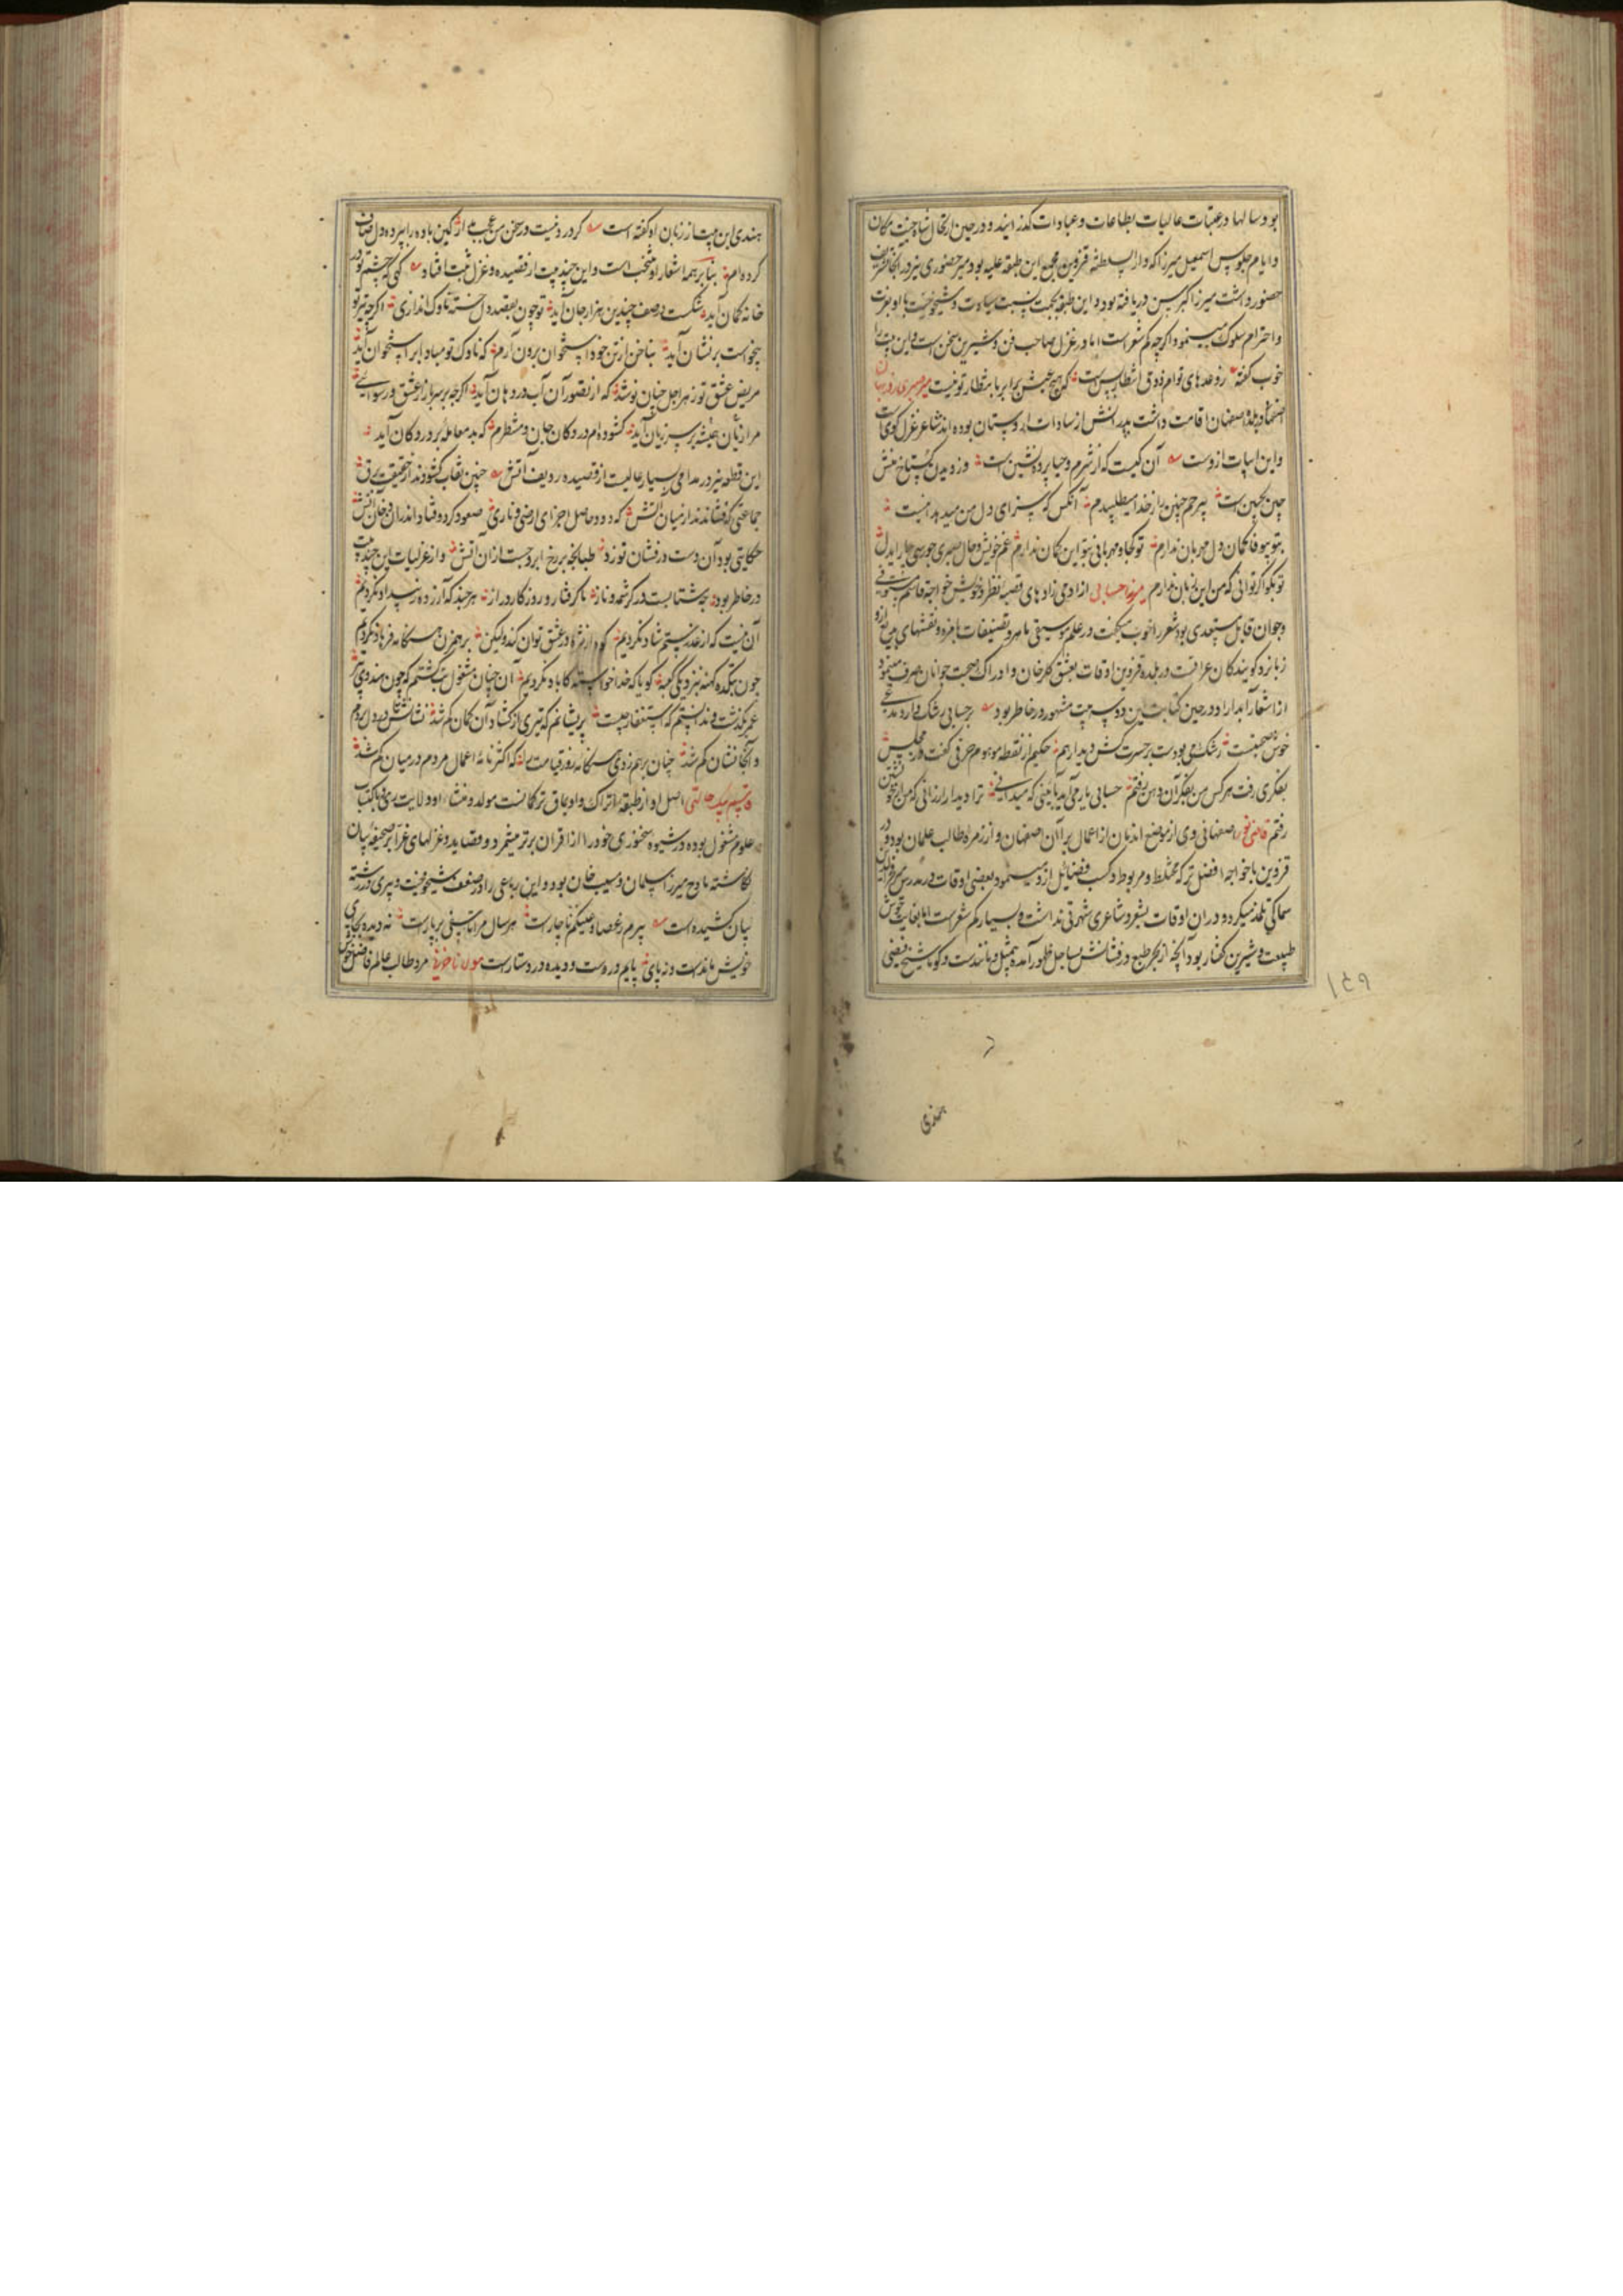 بود سالها در عتبات عالیات بطاعات و عبادات گذرانیده و در حین ارتحال شاه جنت مکان
و ایام جلوس اسمعیل میرزا که دار السلطنه قزوین مجمع این طبقه علیه بود میر حضوری نیز در آنجا تشریف
حضور داشت میرزا کبر سن دریافته بود و این طبقه بجهت نسبت سیادت و شیخوخیت با او بعزت
و احترام سلوک مینمود اگرچه کم شعر است اما در غزل صاحب فن و شیرین سخن است و این بیت را
خوب گفته روعده‌های توام ذوق انتظار بس است که هیچ عیش برابر با انتظار تو نیست
اصفهان اقامت داشت پدرانش از سادات بوده‌اند شاعر غزل گوی است
و این ابیات از وست آن کیست که از شرم و حیا پرده نشین است وز دیدن گستاخ منش
چین بجبین است بیرحم چنین را ز خدا میطلبیدم آنکس که سزای دل من میدهد اینست
بتو بیوفا گمان دل مهربان ندارم تو کجا و مهربانی بتو این گمان ندارم غم خویش و حال
تو بگو اگر توانی که من این زبان ندارم میرزا حسابی از آدمی زادهای قصبه نطنز و خویش خواجه قاسم
و جوان قابل مستعدی بود شعر را خوب میگفت در علم موسیقی ماهر و تصنیفات بامزه و نقشهای
زبانزد گویندگان عراقست در بلده قزوین اوقات بعشق گلرخان و ادراک صحبت جوانان صرف مینمود
از اشعار آبدار او در حین کتابت این دو سه بیت مشهور در خاطر بود بر حسابی رشک دارد مدعی
خوش صحبتیست رشک می بودست بر حسرت کش دیدار هم حکیم از نقطه موهوم حرفی گفت در مجلس
بفکری رفت هر کس من بفکر آن دهن رفتم حسابی یار می‌آید بآئینی که میدانی ترا دیدار ارزانی که من از خویشتن
رفتم قاضی نور اصفهانی وی از موضع اندبان از اعمال برآان اصفهان و از زمره طالب علمان بود و در
قزوین با خواجه افضل ترکه مختلط و مربوط و کسب فضایل ازو مینمود و بعضی اوقات در مدرس
سماکی تلمذ میکرد و در آن اوقات بشعر و شاعری شهرتی نداشت و بسیار کم شعر است اما بغایت خوش
طبیعت و شیرین گفتار بود آنچه از بحر طبع در فشانش بساحل ظهور آمده بیمثل و مانندست و گویا شیخ فیضی
۱۳۹
هندی
هندی این بیت از زبان او گفته است گر درد نیست در سخن من عجب مدار کین باده را سپرده دل صاف
کرده‌ام بنابر همه اشعار او منتخب است و این چند بیت از قصیده و غزل ثبت افتاد گهی که چشم تو در
خانه کمان آید شکست در صف چندین هزار جان آید تو چون بقصد دل خسته ناوک اندازی اگرچه تیر تو
بیخواست بر نشان آید بناخن از تن خود استخوان برون آرم که ناوک تو مبادا بر استخوان آید
مریض عشق تو زهر اجل چنان نوشد که از تصور آن آب در دهان آید اگرچه بر سر بازار عشق و رسوائی
مرا زیان همیشه بر سر زیان آید گشوده‌ام در دکان جان و منتظرم که بد معامله بر در دکان آید
این قطعه نیز در مداحی بسیار عالیست از قصیده ردیف آتش چنین نقاب گشودند از حقیقت برق
جماعتی که فشاندند از بیان آتش که دود حاصل اجزای ارضی و ناری صعود کرد و فتاد اندران دخان آتش
حکایتی بود آن دست درفشان تو زد طبانچه بر رخ ابر و جست از آن آتش و از غزلیات این چند بیت
در خاطر بود پشتابست در کرشمه و ناز ما گرفتار و روزگار دراز هر چند که آزرده رسید او نکردیم
آن نیست که از عذر ستم شاد نکردیم در عشق توان کند ولیکن بر همزن هنگامه فرهاد نکردیم
چون بتکده کهنه بنزدیکی کعبه گویا که خدا خواسته کاباد نکردیم آن چنان مشغول بت گشتم که چون هندوی پیر
عمر بگذشت و ندانستم که استغفار چیست پریشانم که تیری از گشاد آن کمان گم شد نشانش در دل بردم
و آنجا نشان گم شد چنان بر هم زدی هنگامه روز قیامت را که اکثر نامه اعمال مردم در میان گم شد
قاسم بیک حالتی اصل او از طبقه اتراک و اویماق ترکمانست مولد و منشاء او ولایت ری باکتساب
علوم مشغول بوده در شیوه سخنوری خود را از اقران برتر میشمرد و قصاید و غزلهای غرا بر صحیفه بیان
نگاشته مداح میرزا سلمان و سیب خان بود و این رباعی را در صنعت شیخوخیت و پیری در رشته
بیان کشیده است پیرم ز عصا و عینکم ناچار است هر سال مرا تاسفی بر پار است نه دیده بجای
خویش ماندست و نه پای پایم در دست و دیده در دستار است مولانا حزنی مرد طالب عالم فاضل خوش